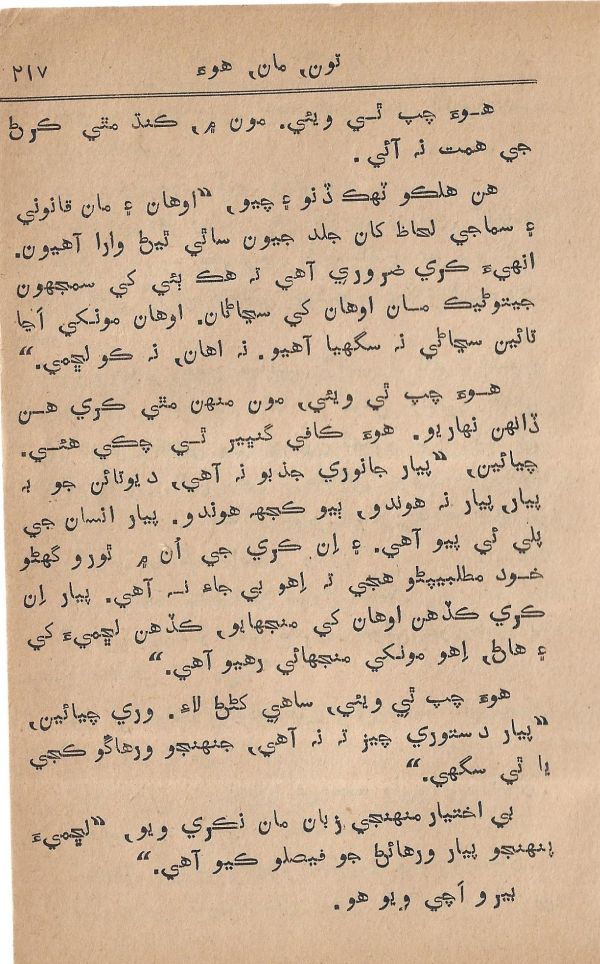 تون, مان, هوءَ
٢١٧
هوءَ چپ ٿي ويئي. مون ۾, ڪنڌ مٿي ڪرڻ
جي همت نہ آئي.
هن هلڪو ٽهڪ ڏنو ۽ چيو, ”اوهان ۽ مان قانوني
۽ سماجي لحاظ کان جلد جيون ساٿي ٿيڻ وارا آهيون.
انهيءَ ڪري ضروري آهي تہ هڪ ٻئي کي سمجهون
جيتوڻيڪ مان اوهان کي سڃاڻان. اوهان مونکي اَڃا
تائين سڃاڻي نہ سگهيا آهيو. نہ اهان, نہ ڪو لڇمي.“
هوءَ چپ ٿي ويئي, مون منهن مٿي ڪري هن
ڏانهن نهاريو. هوءَ ڪافي گنڀير ٿي چڪي هئي.
چيائين, ”پيار جانوري جذبو نہ آهي, ديوتائن جو بہ
پيار, پيار نہ هوندو, ٻيو ڪجهہ هوندو. پيار انسان جي
پلي ئي پيو آهي. ۽ اِن ڪري جي اُن ۾ ٿورو گهڻو
خود مطلبيپڻو هجي تہ اِهو بي جاءِ نہ آهي. پيار اِن
ڪري ڪڏهن اوهان کي منجهايو, ڪڏهن لڇميءَ کي
۽ هاڻ, اِهو مونکي منجهائي رهيو آهي.“
هوءَ چپ ٿي ويئي, ساهي کڻڻ لاءِ. وري چيائين,
”پيار دستوري چيز تہ نہ آهي, جنهنجو ورهاڱو ڪجي
يا ٿي سگهي.“
بي اختيار منهنجي زبان مان نڪري ويو, ”لڇميءَ
پنهنجو پيار ورهائڻ جو فيصلو ڪيو آهي.“
بيرو اَچي ويو هو.